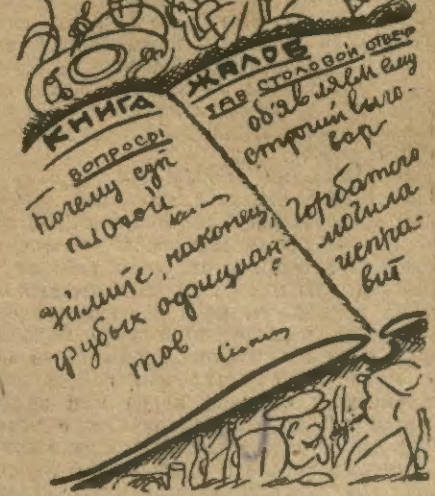 КНИГА
ВОПРОСЫ
Почему суп
плохой
Уймите, наконец,
грубых официан-
тов
ЖАЛОБ
ЗАВ СТОЛОВОЙ ОТВЕТ
об'являем ему
строгий выго-
вар
Горбатого
могила
испра-
вит